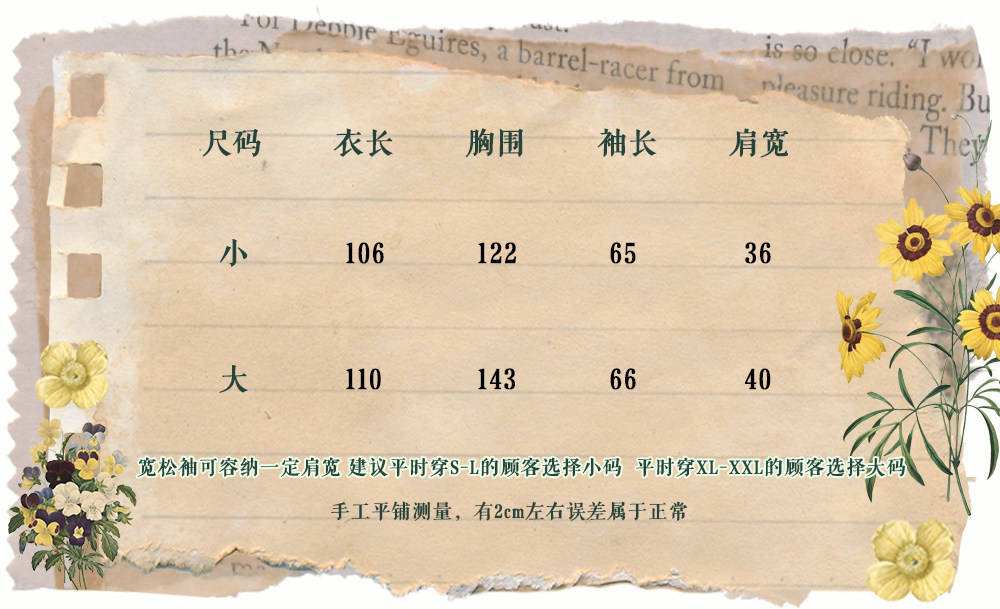 For Debbie Eguires, a barrel-racer from
is so close. "I
pleasure riding. Bu
They
尺码 衣长 胸围 袖长 肩宽
小 106 122 65 36
大 110 143 66 40
宽松袖可容纳一定肩宽 建议平时穿S-L的顾客选择小码 平时穿XL-XXL的顾客选择大码
手工平铺测量，有2cm左右误差属于正常